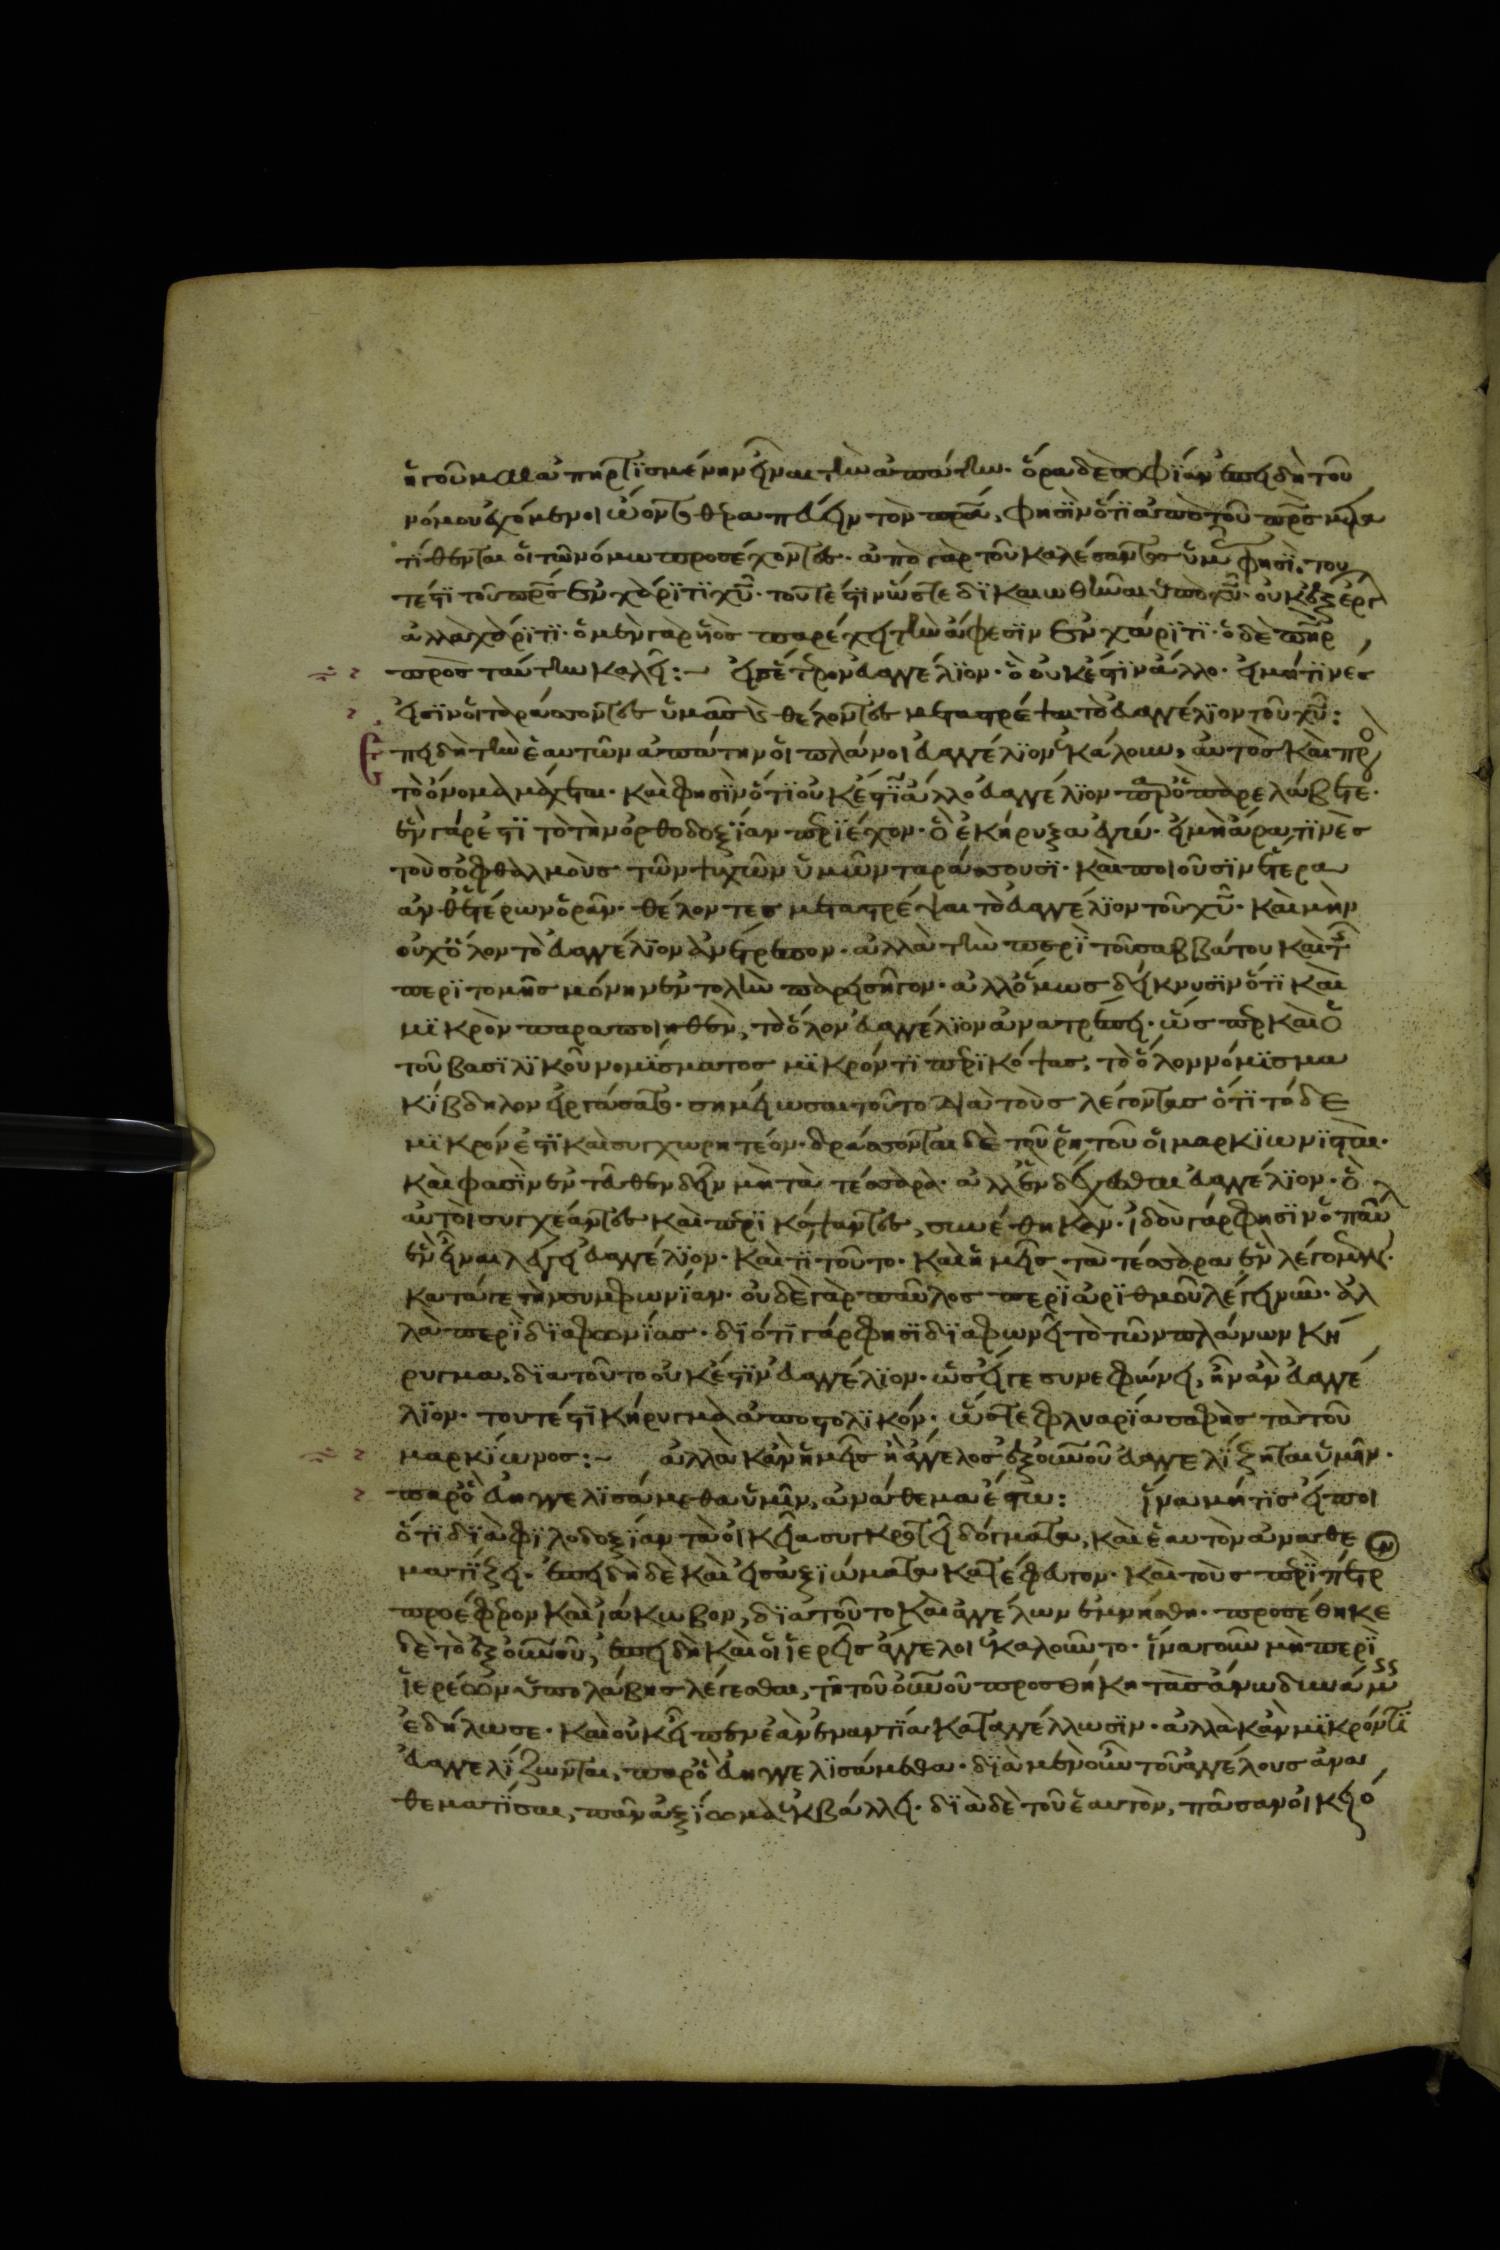 ἡγοῦμαι ἀπηρτισμένην εἶναι τὴν ἀπάτην· ὅρα δὲ σοφίαν· ἐπειδὴ τοῦ
νόμου ἐχόμενοι ᾤοντο θεραπεύειν τὸν πρα, φησὶν ὅτι ἀπὸ τοῦ πρς μετα
τίθενται οἱ τῷ νόμω προσέχοντες· ἀπὸ γὰρ τοῦ καλέσαντος ὑμ φησὶ, του
τέστι τοῦ πρς ἐν χάριτι χυ· τουτέστιν ὥστε δικαιωθῆναι ὑπὸ χυ· οὐκ ἐξ ἔργ
ἀλλὰ χάριτι· ὁ μὲν γὰρ υἱὸς παρέχει τὴν ἄφεσιν ἐν χάριτι· ὁ δὲ πηρ
πρὸς ταύτην καλεῖ: εἰς ἕτερον εὐαγγέλιον· ὃ οὐκ ἔστιν ἄλλο· εἰ μή τινές
εἰσιν οἱ ταράσσοντες ὑμᾶς καὶ θέλοντες μεταστρέψαι τὸ εὐαγγέλιον τοῦ χυ:
Επειδὴ τὴν ἑαυτῶν ἀπάτην οἱ πλάνοι εὐαγγέλιον ἐκάλουν, αὐτὸς καὶ πρ
τὸ ὄνομα μάχεται· καὶ φησὶν ὅτι οὐκ ἔστιν ἄλλο εὐαγγέλιον παρ' ὃ παρελάβετε·
ἓν γάρ ἐστι τὸ τὴν ὀρθοδοξίαν περιέχον· ὃ ἐκήρυξα ἐγώ· εἰ μὴ ἄρα τινὲς
τοὺς ὀφθαλμοὺς τῶν ψυχῶν ὑμῶν ταράσσουσι· καὶ ποιοῦσιν ἕτερα
ἀνθ' ἑτέρων ὁρᾶν· θέλοντες μεταστρέψαι τὸ εὐαγγέλιον τοῦ χυ· καὶ μὴν
οὐχ ὅλον τὸ εὐαγγέλιον ἀνέτρεπον· ἀλλὰ τὴν περὶ τοῦ σαββάτου καὶ τ
περιτομῆς μόνην ἐντολὴν παρεισῆγον· ἀλλ' ὅμως δείκνυσιν ὅτι καὶ
μικρὸν παραποιηθὲν, τὸ ὅλον εὐαγγέλιον ἀνατρέπει· ὥσπερ καὶ ὁ
τοῦ βασιλικοῦ νομίσματος μικρόν τι περικόψας, τὸ ὅλον νόμισμα
κίβδηλον εἰργάσατο· σημείωσαι τοῦτο διὰ τοὺς λέγοντας ὅτι τόδε
μικρόν ἐστι καὶ συγχωρητέον· δράσσονται δὲ τοῦ ῥητοῦ οἱ μαρκιωνισταὶ·
καὶ φασὶν ἐντεῦθεν δεῖν μὴ τὰ τέσσαρα· ἀλλ' ἓν δέχεσθαι εὐαγγέλιον· ὃ
αὐτοὶ συγχέαντες καὶ περικόψαντες, συνέθηκαν· ἰδοὺ γάρ φησιν ὁ παῦλ
ἓν εἶναι λέγει εὐαγγέλιον· καὶ τί τοῦτο· καὶ ἡμεῖς τὰ τέσσαρα ἓν λέγομεν·
κατά γε τὴν συμφωνίαν· οὐδὲ γὰρ παῦλος περὶ ἀριθμοῦ λέγει νῦν· ἀλ
λὰ περὶ διαφωνίας· διότι γάρ φησι διαφωνεῖ τὸ τῶν πλάνων κή
ρυγμα, διατοῦτο οὐκ ἔστιν εὐαγγέλιον· ὡς εἴγε συνεφώνει, ἦν ἂν εὐαγγέ
λιον· τουτέστι κήρυγμα ἀποστολικόν· ὥστε φλυαρία σαφὴς τὰ τοῦ
μαρκίωνος: ἀλλὰ κἂν ἡμεῖς ἢ ἄγγελος ἐξ οὐνοῦ εὐαγγελίζηται ὑμῖν·
παρ' ὃ εὐηγγελισάμεθα ὑμῖν, ἀνάθεμα ἔστω: ἵνα μή τις εἴποι
ὅτι διὰ φιλοδοξίαν τὰ οἰκεῖα συγκροτεῖ δόγματα, καὶ ἑαυτὸν ἀναθε
ματίζει· ἐπειδὴ δὲ καὶ εἰς ἀξιώματα κατέφευγον· καὶ τοὺς περὶ πέτρ
προέφερον καὶ ἰάκωβον, διατοῦτο καὶ ἀγγέλων ἐμνήσθη· προσέθηκε
δὲ τὸ ἐξ οὐνοῦ, ἐπειδὴ καὶ οἱ ἱερεῖς ἄγγελοι ἐκαλοῦντο· ἵνα γοῦν μὴ περὶ
ἱερέων ὑπολάβῃς λέγεσθαι, τῇ τοῦ οὐνοῦ προσθήκῃ τὰς ἄνω δυνάμ
ἐδήλωσε· καὶ οὐκ εἶπεν ἐὰν ἐναντία καταγγέλλωσιν· ἀλλὰ κἂν μικρόν τι
εὐαγγελίζωνται, παρ' ὃ εὐηγγελισάμεθα· διὰ μὲν οὖν τοῦ ἀγγέλους ἀνα
θεματίσαι, πᾶν ἀξίωμα ἐκβάλλει· διὰ δὲ τοῦ ἑαυτὸν, πᾶσαν οἰκειό